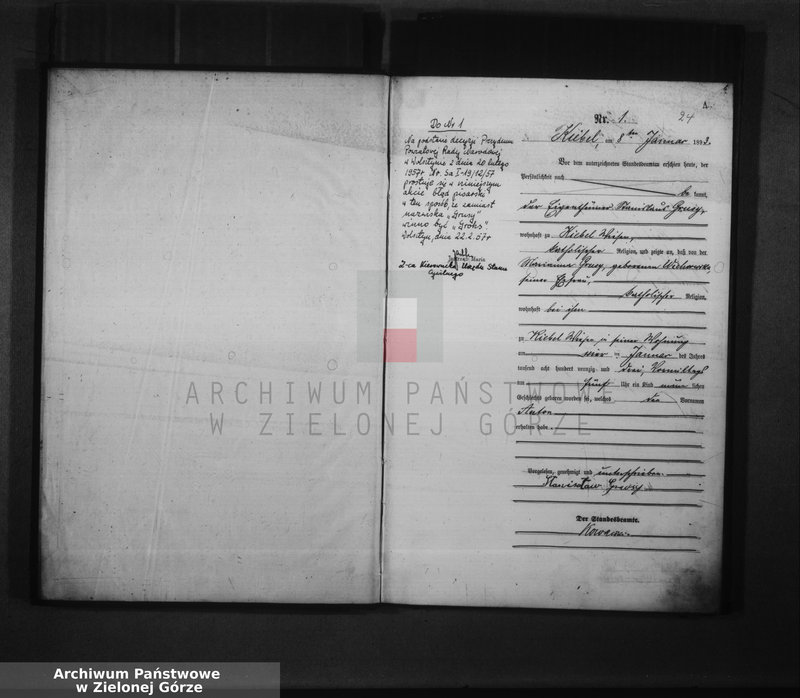 A.
24
Do Nr 1
Na podstawie decyzji Prezydium
Powiatowej Rady Narodowej
w Wolsztynie z dnia 20 lutego
1957r. Nr. Sa I-19/12/57
prostuje się w niniejszym
akcie błąd pisarski
w ten sposób, że zamiast
nazwiska „Grusy”
winno być
Wolsztyn, dnia 22.2.57r
Maria
Z-ca Kierownika Urzędu Stanu
Cywilnego
Nr. 1.
Kiebel, am 8ten Januar 1893.
Vor dem unterzeichneten Standesbeamten erschien heute, der
Persönlichkeit nach
be kannt,
der Eigenthümer Stanislaus
wohnhaft zu Kiebel
katholischer Religion, und zeigte an, daß von der
Marianna geborenen
seiner Ehefrau,
katholischer Religion,
wohnhaft bei ihm
zu Kiebel in seiner Wohnung
am vier ten Januar des Jahres
tausend acht hundert neunzig und drei, Vormittags
um fünf Uhr ein Kind männ lichen
Geschlechts geboren worden sei, welches den Vornamen
Anton
erhalten habe.
Vorgelesen, genehmigt und unterschrieben.
Stanisław
Der Standesbeamte.
ARCHIWUM PAŃSTWOWE
W ZIELONEJ GÓRZE
Archiwum Państwowe
w Zielonej Górze